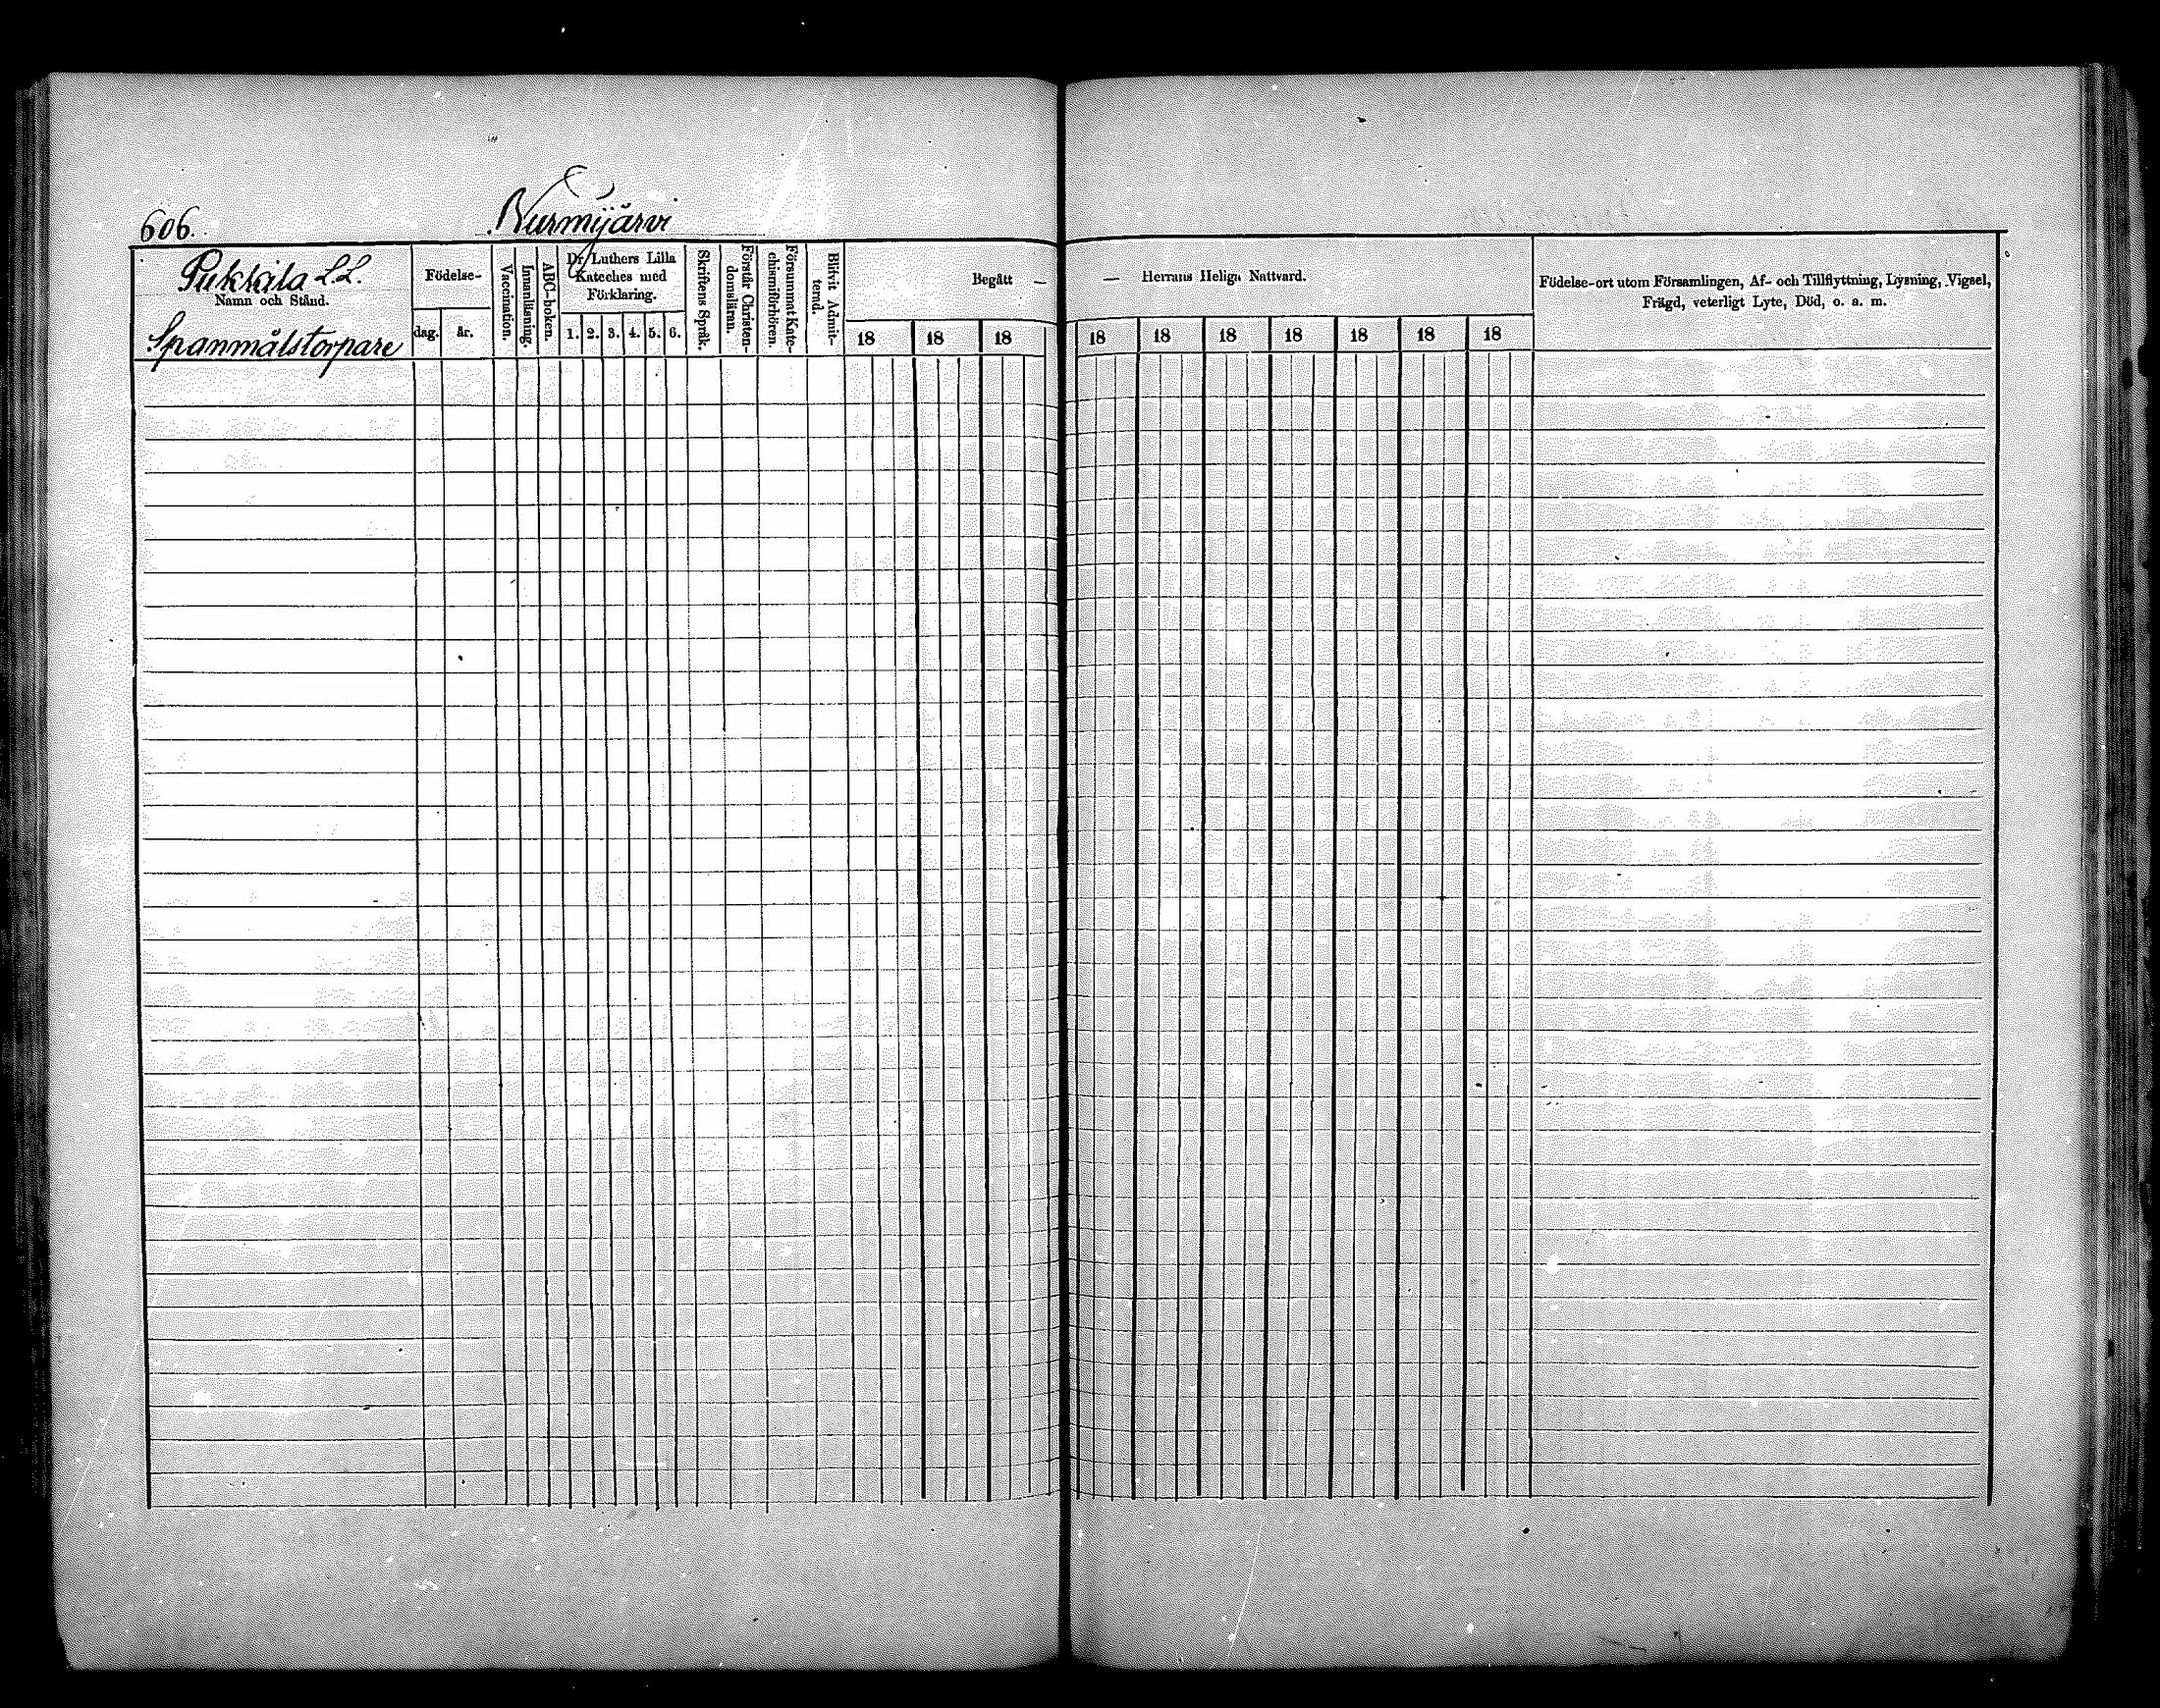 606.
Nurmijärvi
Pukkila L.L.
Namn och Stånd.
Spanmålstorpare
Födelse-
dag.
år.
Vaccination.
Innanläsning.
ABC-boken.
Dr Luthers Lilla
Kateches med
Förklaring.
1. 2. 3. 4. 5. 6.
Skriftens Språk.
Förstår Christen-
domsläran.
Försummat Kate-
chismiförhören.
Blifvit Admit-
terad.
Begått —
18 18 18
— Herrans Heliga Nattvard.
18 18 18 18 18 18 18
Födelse-ort utom Församlingen, Af- och Tillflyttning, Lysning, Vigsel,
Frägd, veterligt Lyte, Död, o. a. m.